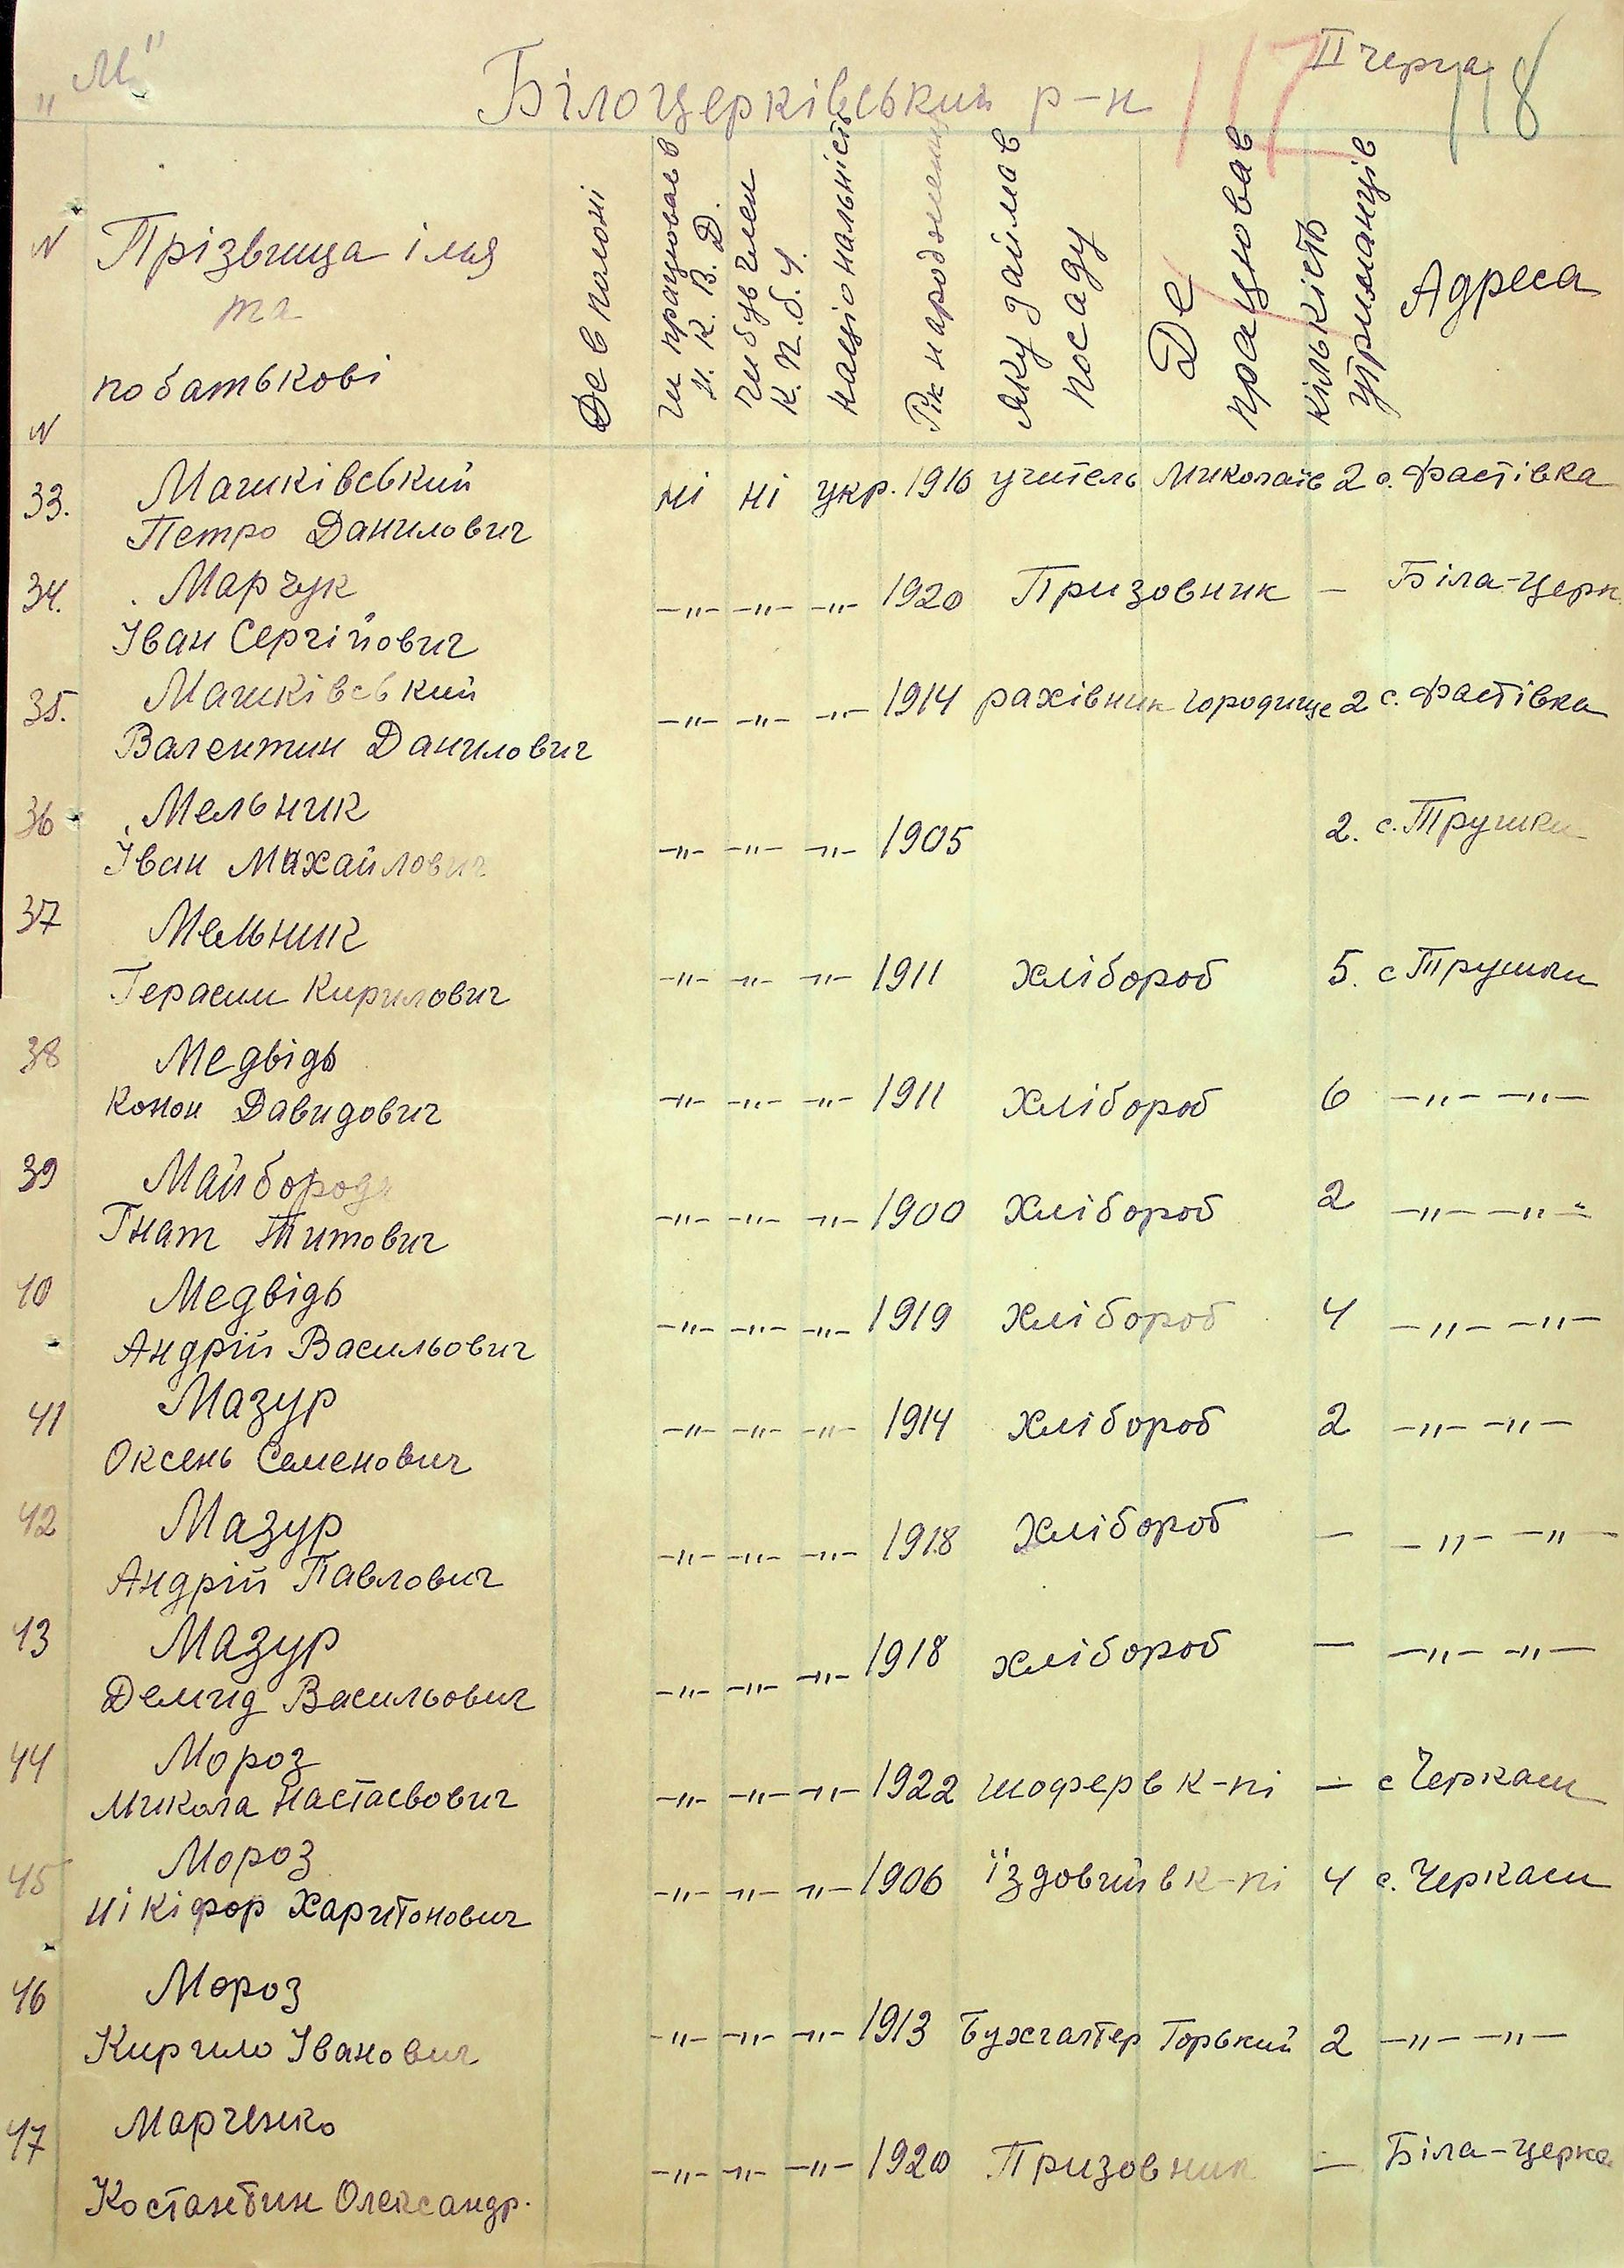 „М"
Білоцерківський р-н
117
II черга
118
N N
Прізвища імя
та
по батькові
Де в полоні
чи працював в
Н. К. В. Д.
чи був член
К.П.б.У.
національність
Рік народження
яку займав
посаду
Де
працював
кількість
утриманців
Адреса
33. Машківський
Петро Данилович
ні ні укр. 1916 учитель Миколаїв 2 с. Фастівка
34. Марчук
Іван Сергійович
-„- -„- -„- 1920 Призовник - Біла-церк
35. Машківський
Валентин Данилович
-„- -„- -„- 1914 рахівник Городище 2 с. Фастівка
36 Мельник
Іван Михайлович
-„- -„- -„- 1905 2. с. Трушки
37 Мельник
Герасим Кирилович
-„- -„- -„- 1911 Хлібороб 5. с Трушки
38 Медвідь
Конон Давидович
-„- -„- -„- 1911 Хлібороб 6 -„- -„-
39 Майборода
Гнат Титович
-„- -„- -„- 1900 Хлібороб 2 -„- -„-
40 Медвідь
Андрій Васильович
-„- -„- -„- 1919 Хлібороб 4 -„- -„-
41 Мазур
Оксень Семенович
-„- -„- -„- 1914 Хлібороб 2 -„- -„-
42 Мазур
Андрій Павлович
-„- -„- -„- 1918 Хлібороб - -„- -„-
43 Мазур
Демид Васильович
-„- -„- -„- 1918 хлібороб - -„- -„-
44 Мороз
Микола Настасвович
-„- -„- -„- 1922 шофер в к-пі - с Черкаси
45 Мороз
Нікіфор Харитонович
-„- -„- -„- 1906 їздовий в к-пі 4 с. Черкаси
46 Мороз
Кирило Іванович
-„- -„- -„- 1913 Бухгалтер Горький 2 -„- -„-
47 Марченко
Костантин Олександр.
-„- -„- -„- 1920 Призовник - Біла-церква